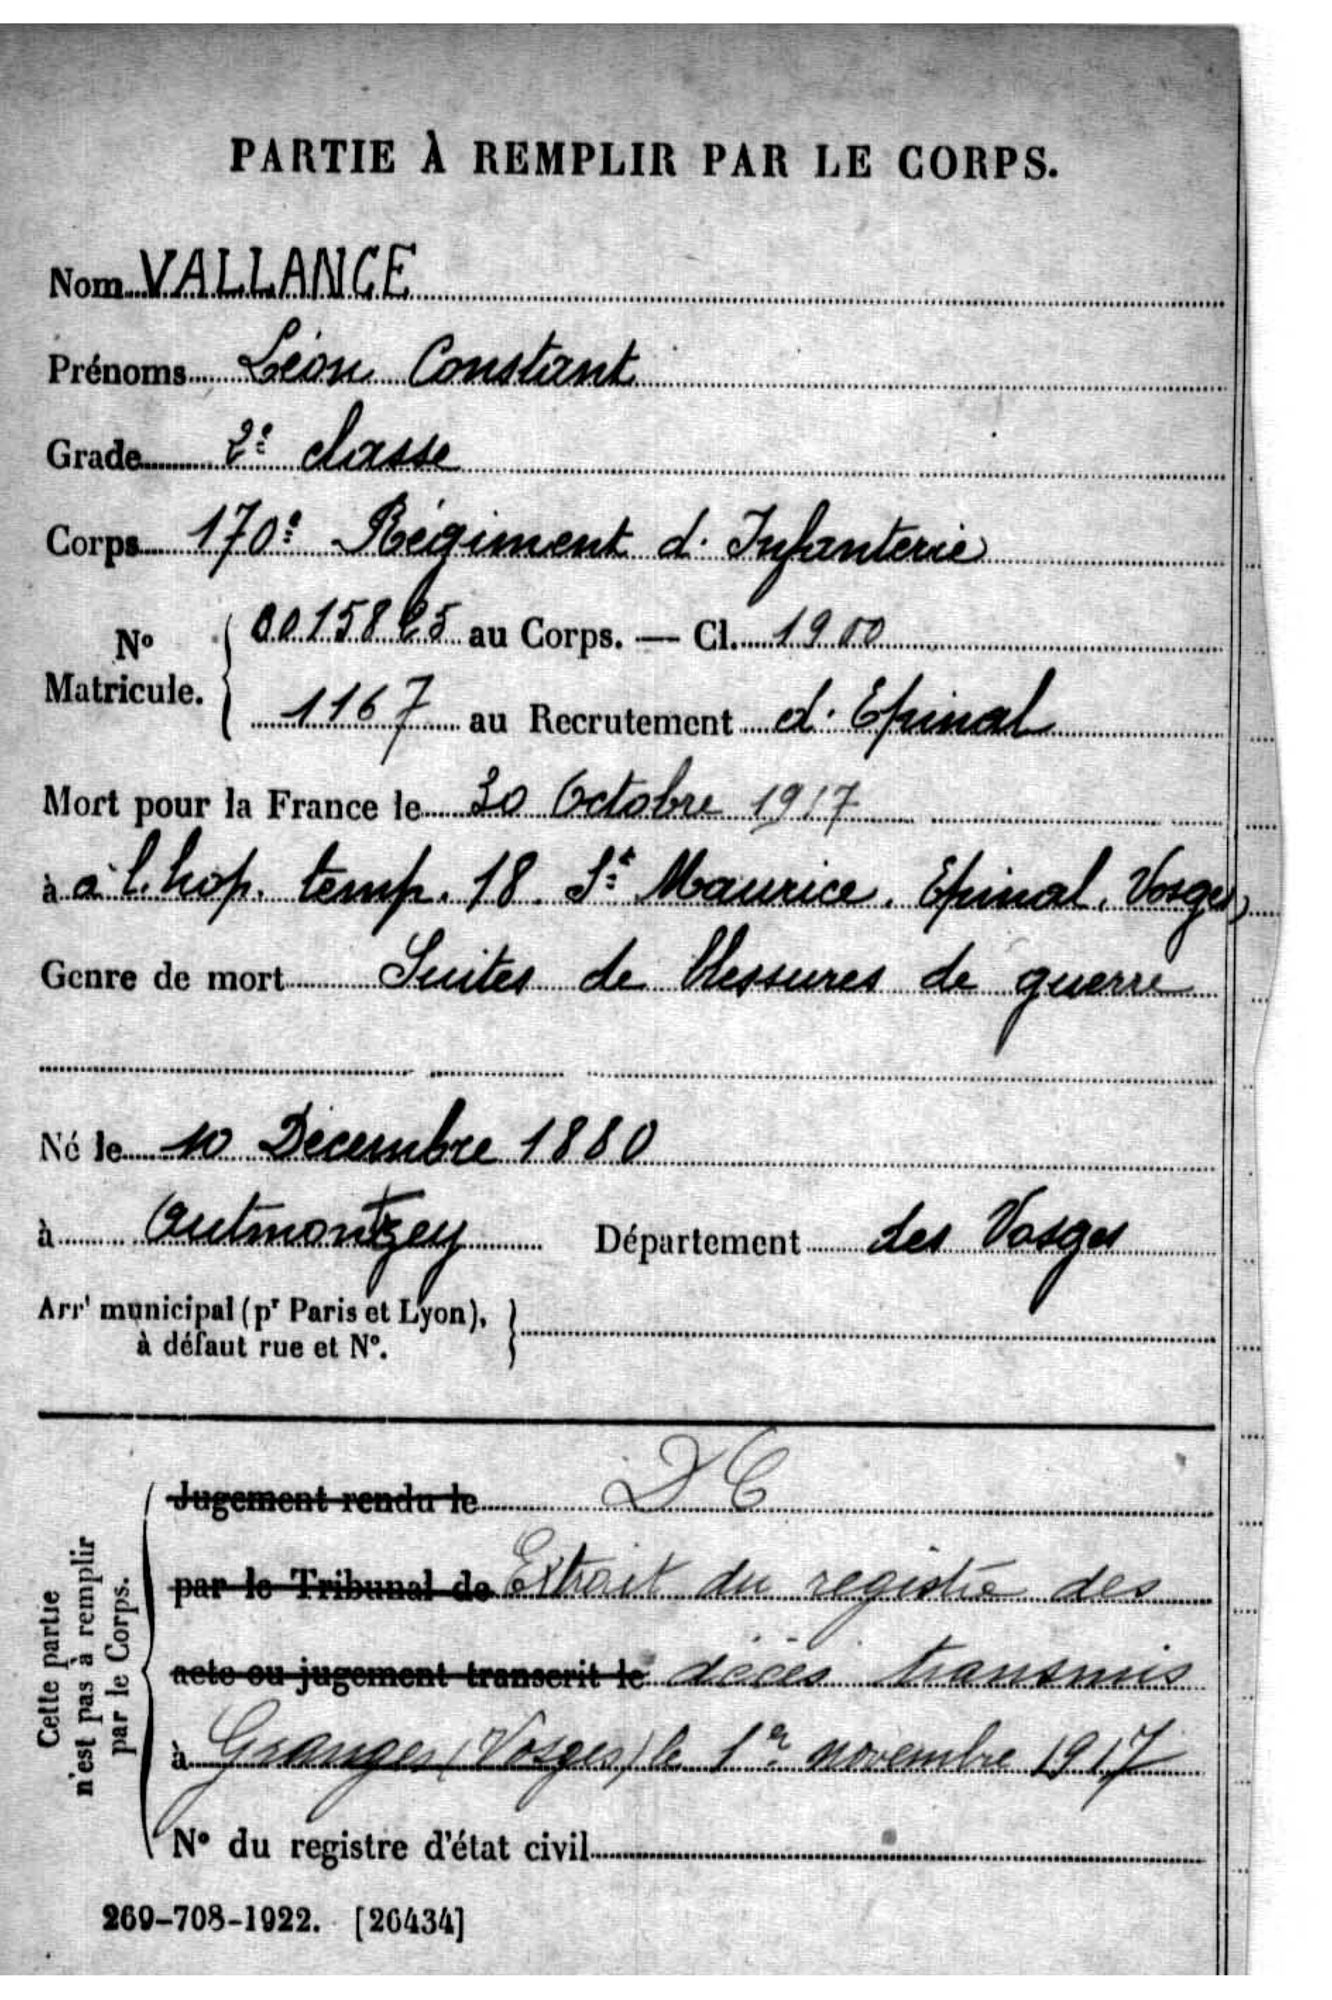 PARTIE À REMPLIR PAR LE CORPS.
Nom VALLANCE
Prénoms Léon Constant
Grade 2e classe
Corps 170e Régiment d'Infanterie
No Matricule. { 0015825 au Corps. — Cl. 1900
1167 au Recrutement d'Epinal
Mort pour la France le 30 Octobre 1917
à à l'hop. temp. 18. St Maurice. Epinal. Vosges
Genre de mort Suites de blessures de guerre
Né le 10 Décembre 1880
à Autmontzey Département des Vosges
Arrt municipal (pr Paris et Lyon), }
à défaut rue et No.
Cette partie
n'est pas à remplir
par le Corps.
Jugement rendu le DC
par le Tribunal de Extrait du registre des
acte ou jugement transcrit le décès transmis
à Granges (Vosges) le 1er novembre 1917
No du registre d'état civil
269-708-1922. [26434]